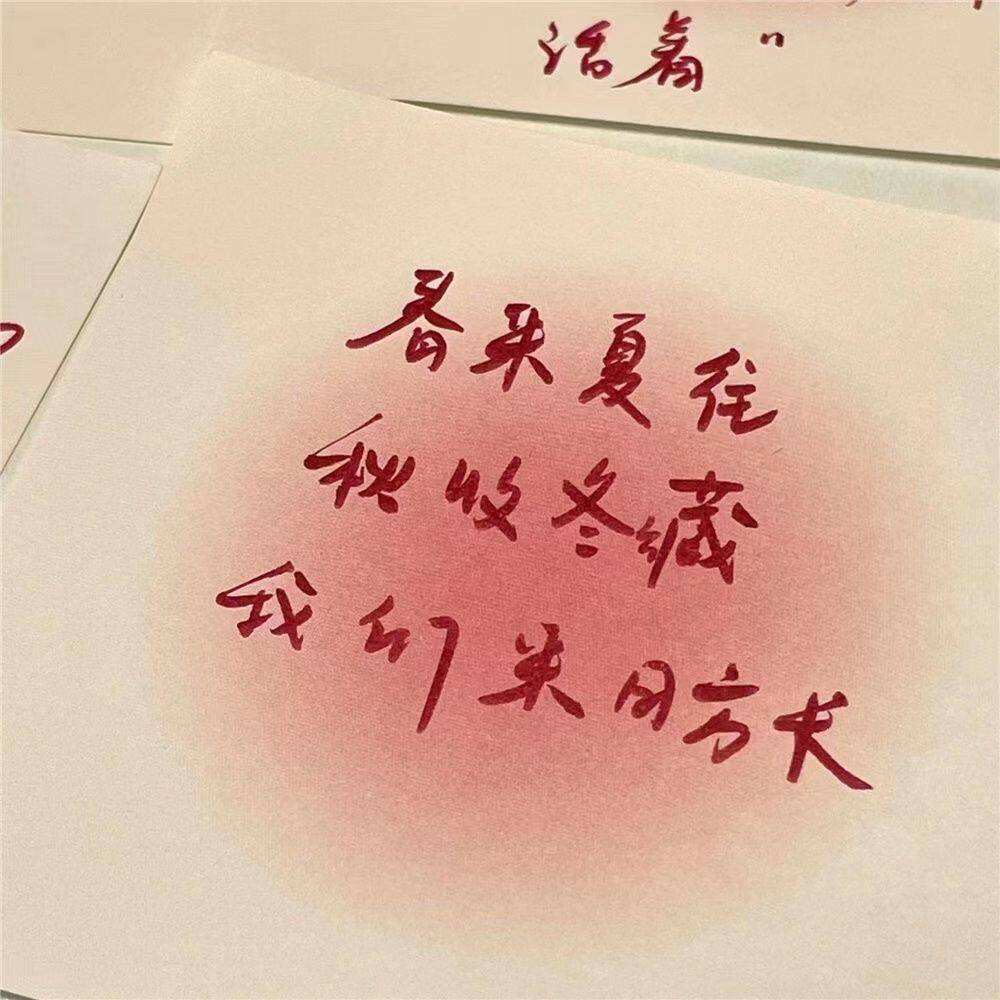 活着"
春来夏往
秋收冬藏
我们来日方长